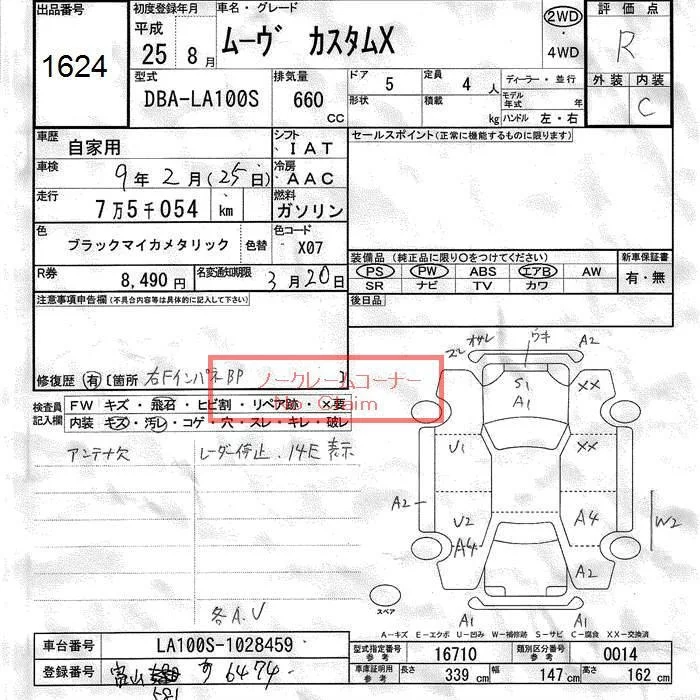 出品番号 初度登録年月 車名・グレード 評価点
1624 平成 25年 8月 ムーヴ カスタムX 2WD・4WD R
外装 内装 C
型式 排気量 ドア 5 定員 4人 ディーラー・並行
DBA-LA100S 660 CC 形状 積載 kg モデル年式 年 ハンドル 左・右
車歴 自家用 シフト IAT セールスポイント(正常に機能するものに限ります)
車検 9年2月(25日) 冷房 AAC
走行 7万5千054 km 燃料 ガソリン
色 ブラックマイカメタリック 色替 色コード X07
装備品(純正品に限り〇をつけてください) 新車保証書
PS PW ABS エアB AW 有・無
SR ナビ TV カワ
R券 8,490円 名変通知期限 3月20日
後日品
注意事項申告欄(不具合内容等は具体的に記入して下さい)
修復歴 有 〔箇所 右Fインパネ BP
ノークレームコーナー
No Claim
検査員記入欄 FW キズ・飛石・ヒビ割・リペア跡・×要
内装 キズ・汚レ・コゲ・穴・スレ・キレ・破レ
アンテナ欠 レーダー停止.14E 表示
各A.U
ウキ A2
S1 A1 XX
U1 XX
A2 U2 A4 W2
A4 A2
スペア
A1 A1
A-キズ E-エクボ U-凹み W-補修跡 S-サビ C-腐食 XX-交換済
車台番号 LA100S-1028459 型式指定番号 参考 16710 類別区分番号 参考 0014
登録番号 富山 581 6474 車庫証明用 参考 長さ 339 cm 幅 147 cm 高さ 162 cm